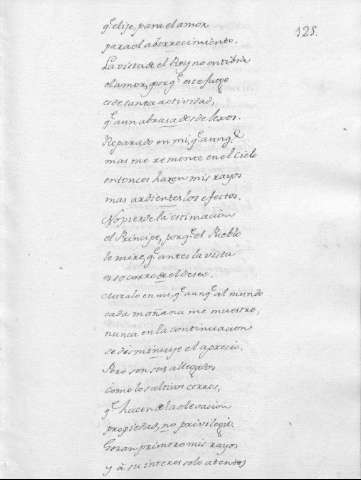 325.
q.e elije, para el amor
para el aborrecimiento.
La vista de el Rey no entibia
el amor, porq.e ese fuego
es de tanta actividad,
q.e aun abrasa desde lexos.
Reparad en mi, q.e aunq.e
mas me remonte en el Cielo
entonces hazen mis rayos
mas ardientes los efectos.
No pierde la estimacion
el Principe, porq.e el Pueblo
le mire, q.e antes la vista
es socorro de el deseo.
miralo en mi, q.e aunq.e al mundo
cada mañana me muestro,
nunca en la continuacion
se desminuye el aprecio.
Pero son sus allegados
como los altivos cerros,
q.e hacen de la elevacion
propiedad, no privilegio.
Gozan primero mis rayos
y à su interes solo atentos